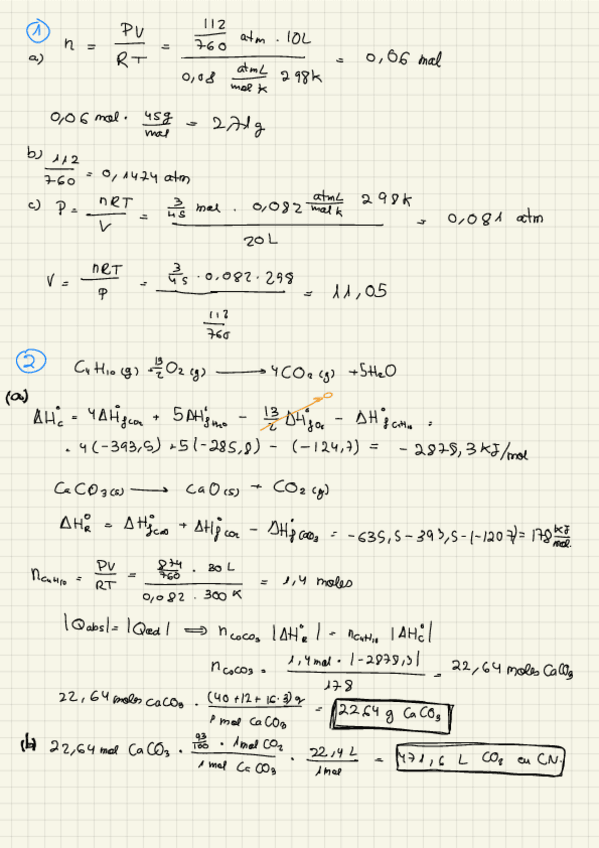 1
a) n = PV/RT = (112/760 atm · 10L)/(0,08 atmL/mol k 298k) = 0,06 mol
0,06 mol · 45g/mol = 2,71g
b) 112/760 = 0,1474 atm
c) P = nRT/V = (3/45 mol · 0,082 atmL/mol k 298k)/20L = 0,081 atm
V = nRT/P = (3/45 · 0.082 · 298)/(112/760) = 11,05
2
C4H10(g) + 13/2 O2(g) ⟶ 4CO2(g) + 5H2O
(a)
ΔH°c = 4ΔH°fCO2 + 5ΔH°fH2O − 13/2 ΔH°fO2 → 0 − ΔH°fC4H10 =
= 4(-393,5) + 5(-285,8) − (-124,7) = −2878,3 KJ/mol
CaCO3(s) ⟶ CaO(s) + CO2(g)
ΔH°R = ΔH°fCaO + ΔH°fCO2 − ΔH°fCaCO3 = −635,5−393,5−(−1207) = 178 KJ/mol.
nC4H10 = PV/RT = (874/760 · 30L)/(0,082 · 300K) = 1,4 moles
|Qabs| = |Qced| ⟹ nCaCO3 |ΔH°R| = nC4H10 |ΔH°c|
nCaCO3 = (1,4mol · |−2878,3|)/178 = 22,64 moles CaCO3
22,64 moles CaCO3 · (40+12+16·3)g/1 mol CaCO3 = 2264 g CaCO3
(b) 22,64 mol CaCO3 · (93/100 · 1mol CO2)/(1 mol CaCO3) · 22,4L/1mol = 471,6 L CO2 en CN.